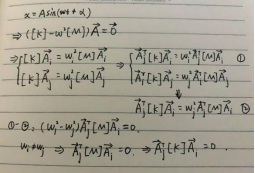 x = A sin(ωt + α)
⇒ ([K] - ω²[M]) A⃗ = 0⃗
⇒ { [K]A⃗ᵢ = ωᵢ²[M]A⃗ᵢ ⇒ { A⃗ⱼᵀ[K]A⃗ᵢ = ωᵢ²A⃗ⱼᵀ[M]A⃗ᵢ ①
[K]A⃗ⱼ = ωⱼ²[M]A⃗ⱼ A⃗ᵢᵀ[K]A⃗ⱼ = ωⱼ²A⃗ᵢᵀ[M]A⃗ⱼ
⇓
A⃗ⱼᵀ[K]A⃗ᵢ = ωⱼ²A⃗ⱼᵀ[M]A⃗ᵢ ②
①-②: (ωᵢ² - ωⱼ²)A⃗ⱼᵀ[M]A⃗ᵢ = 0.
ωᵢ ≠ ωⱼ ⇒ A⃗ⱼᵀ[M]A⃗ᵢ = 0. ⇒ A⃗ⱼᵀ[K]A⃗ᵢ = 0.